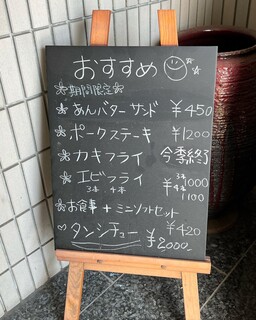 おすすめ
❀期間限定❀
❀あんバターサンド ¥450
❀ポークステーキ ¥1200
❀カキフライ 今季終了
❀エビフライ 3本 ¥1000
3本 4本 4本 1100
❀お食事 + ミニソフトセット ¥420
♡タンシチュー ¥2000